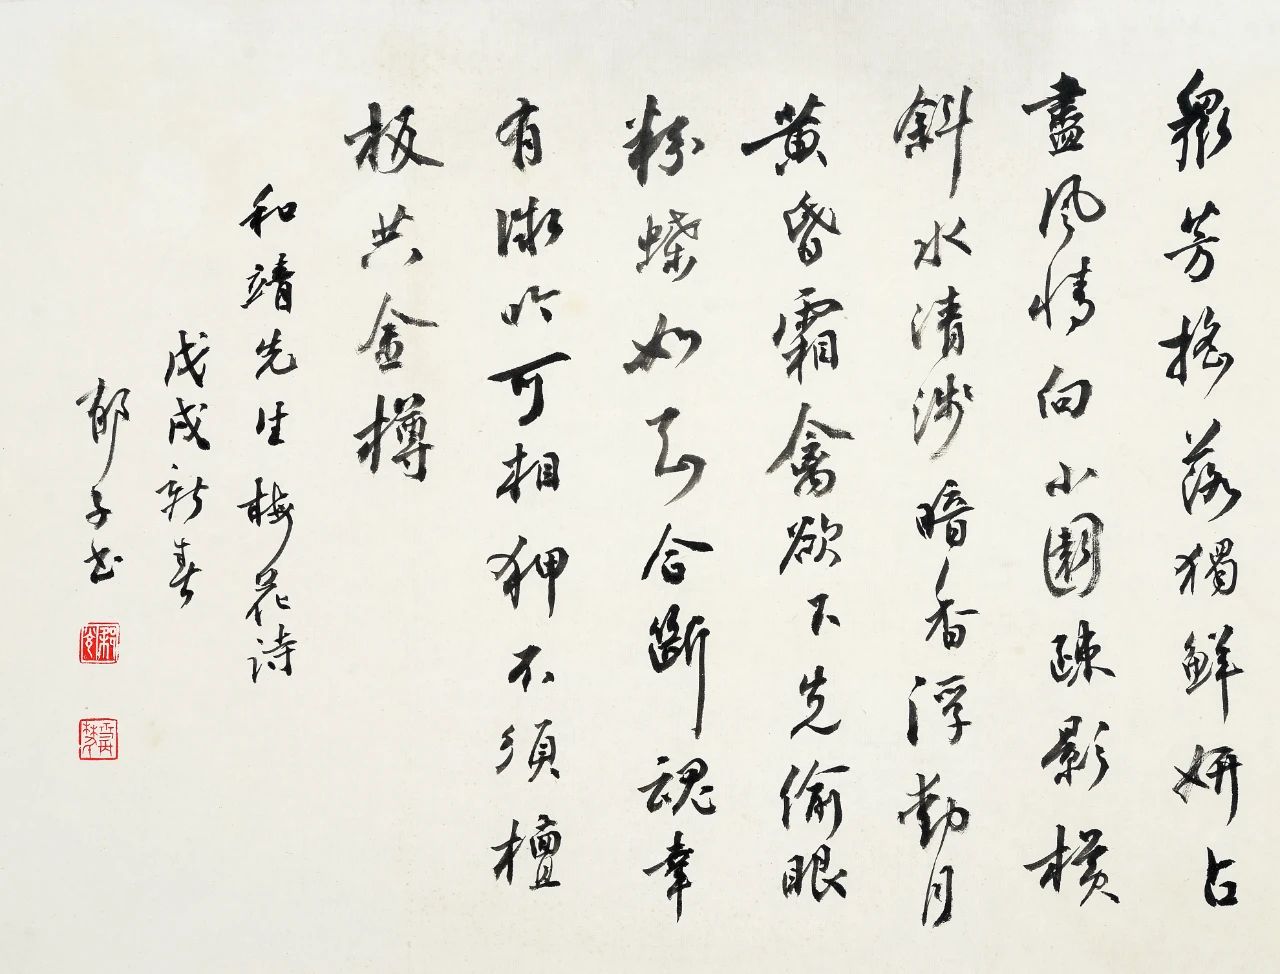 眾芳搖落獨鮮妍占
盡風情向小園疎影橫
斜水清淺暗香浮動月
黃昏霜禽欲下先偷眼
粉蝶如知合斷魂幸
有微吟可相狎不須檀
板共金樽
和靖先生梅花詩
戊戌新春
郁子书